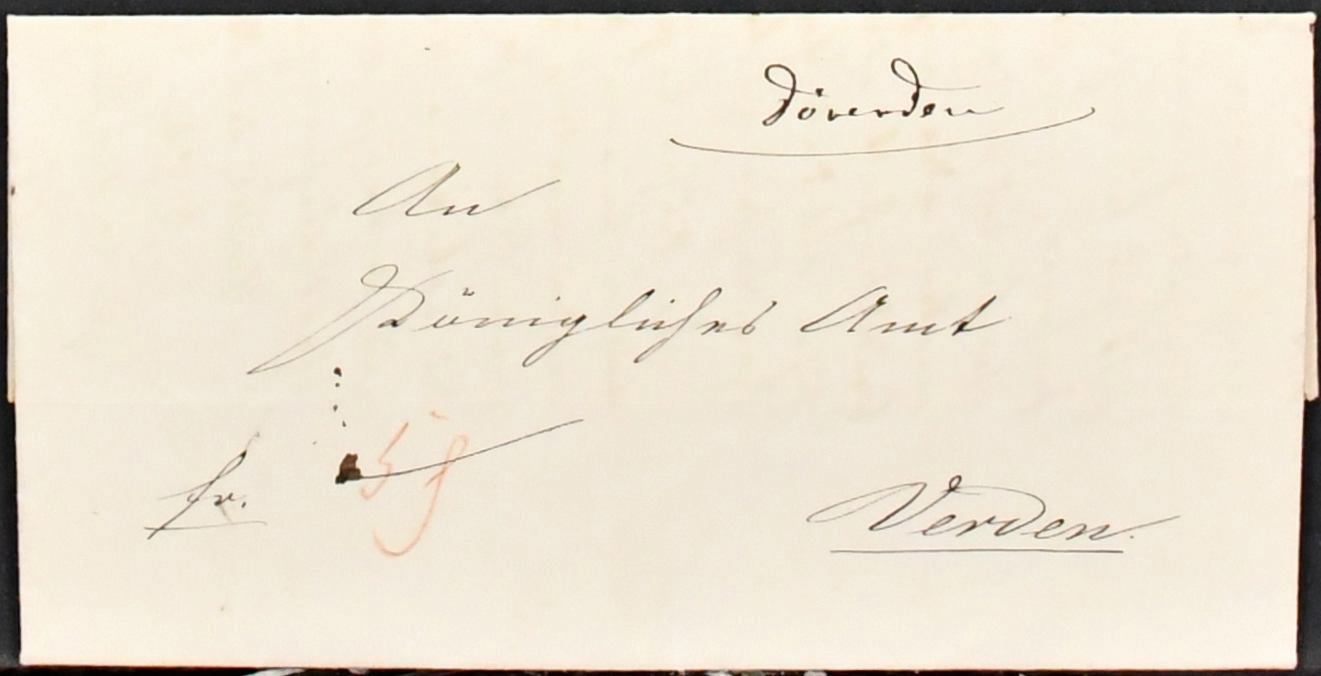 Dörverden
An
Königliches Amt
fr.
Verden.